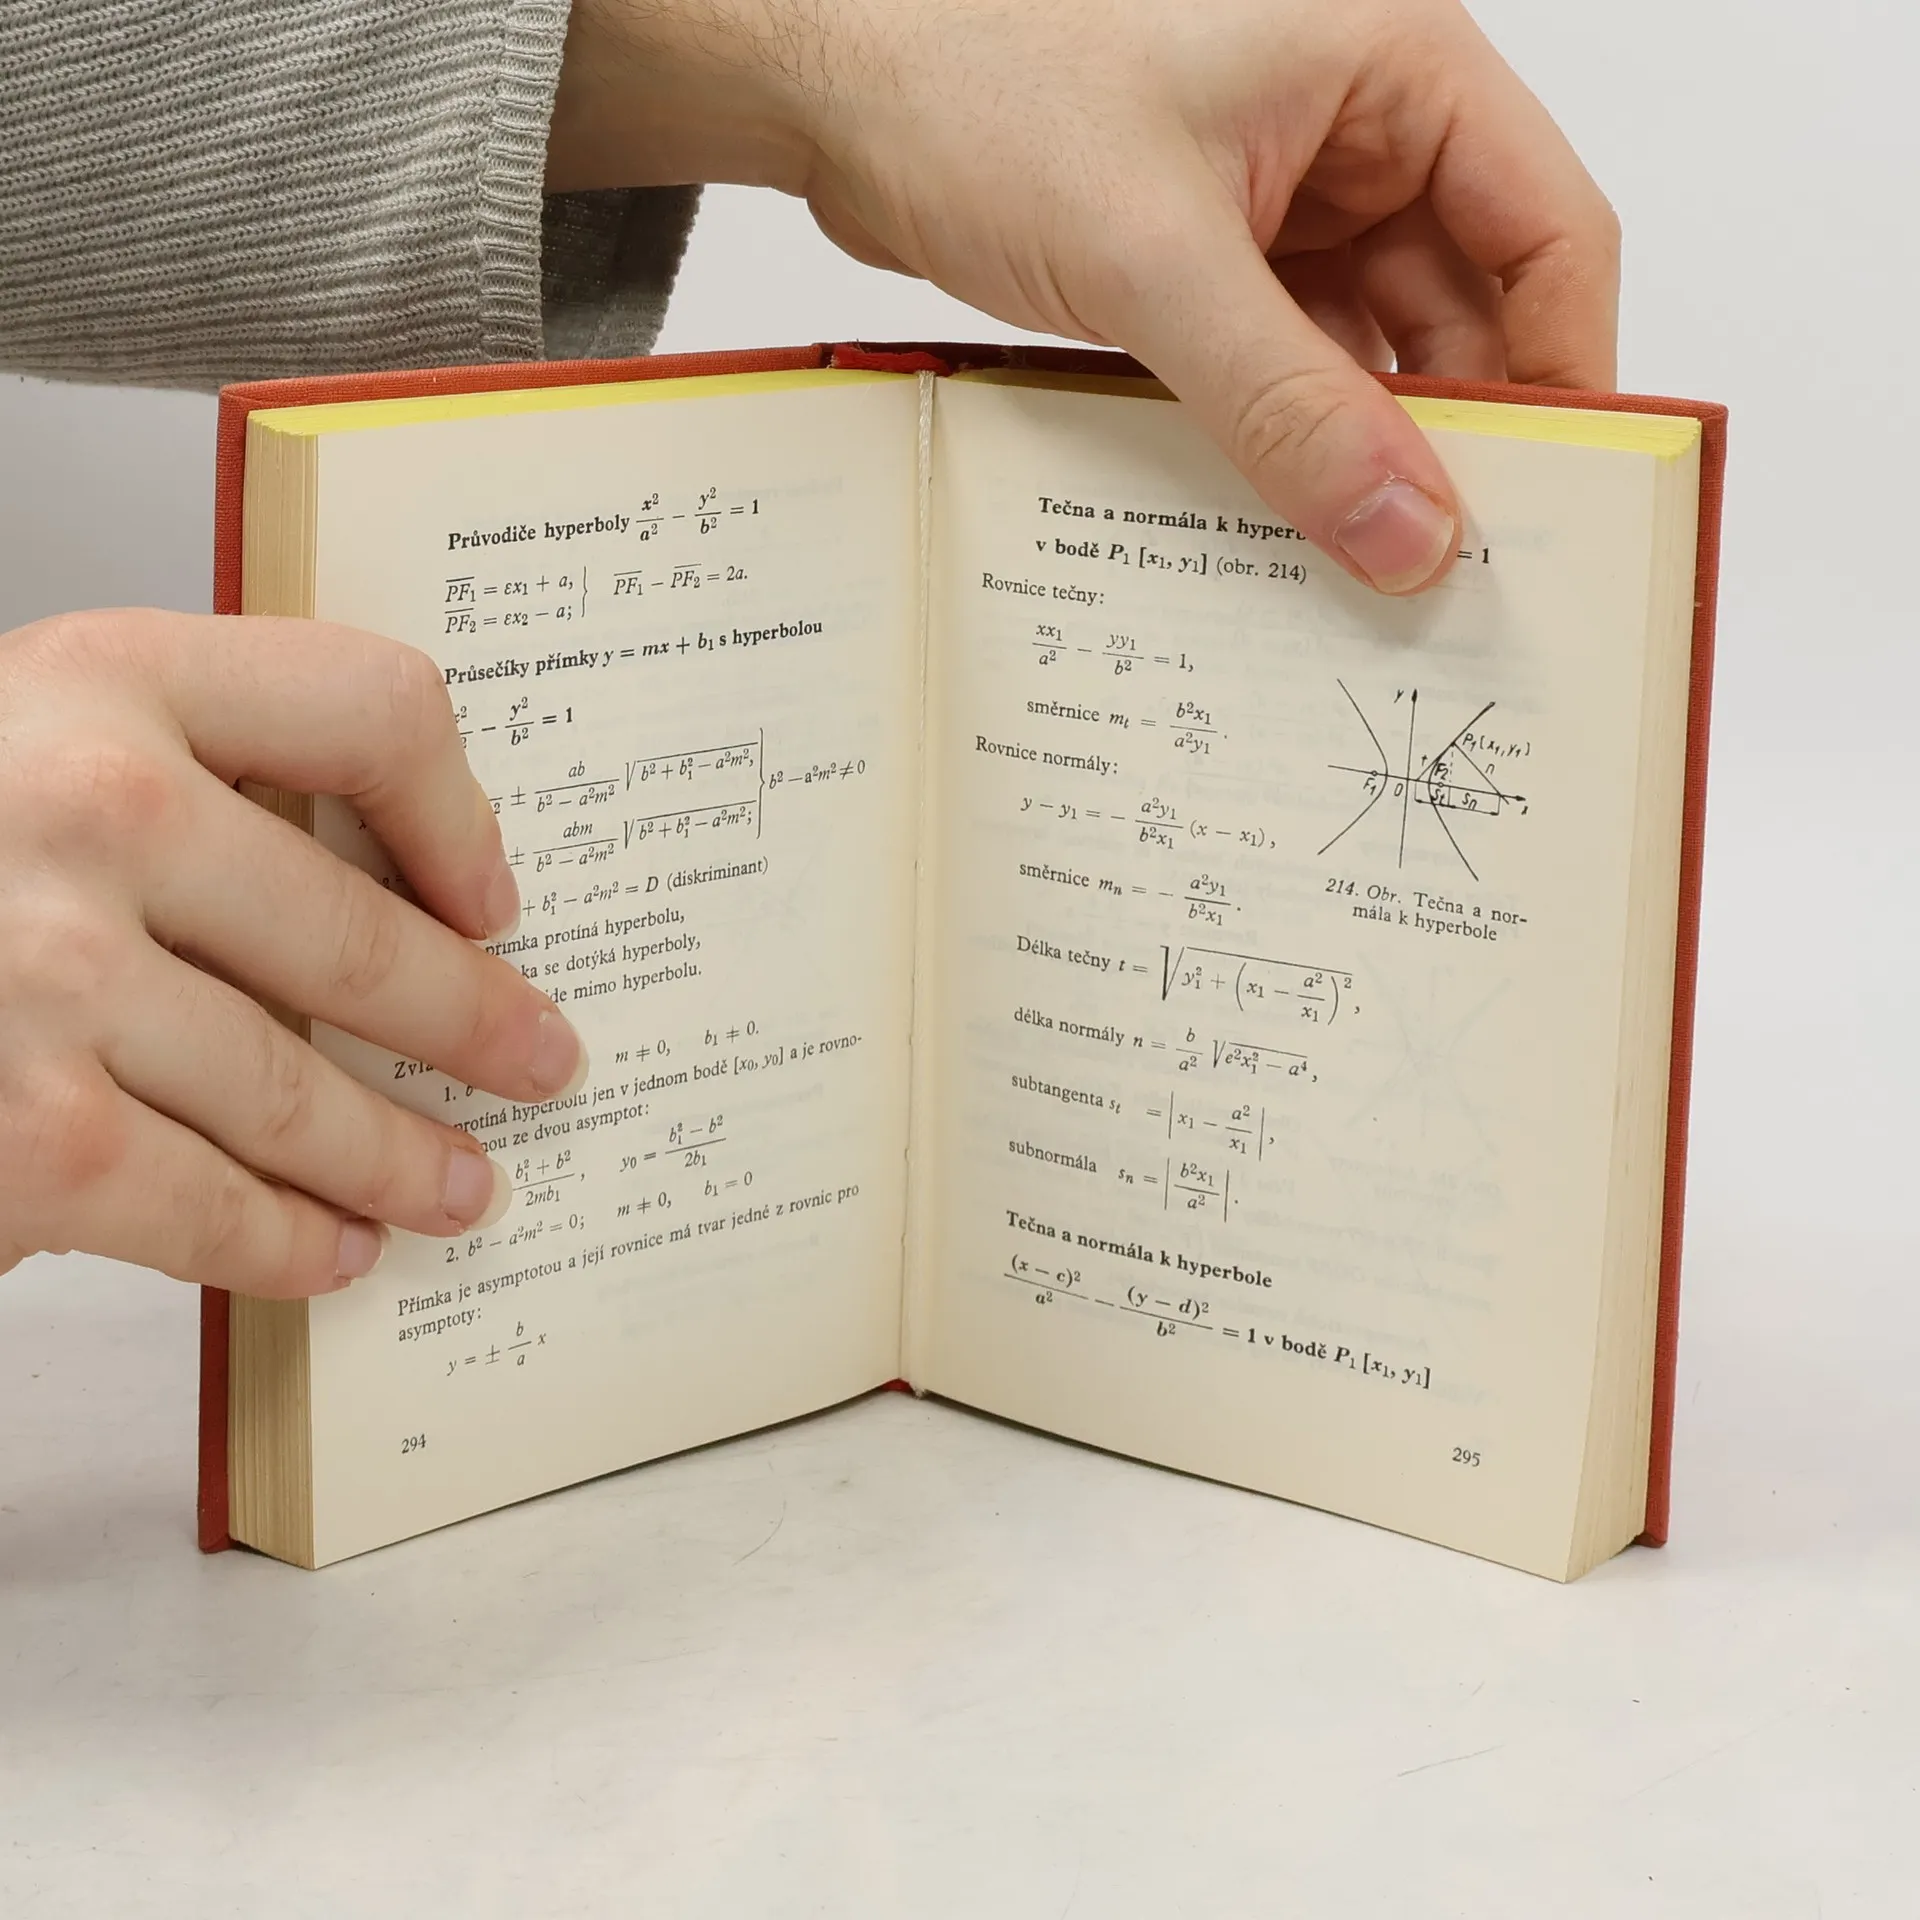 Průvodiče hyperboly x²/a² − y²/b² = 1
PF₁ = εx₁ + a, } PF₁ − PF₂ = 2a.
PF₂ = εx₂ − a;
Průsečíky přímky y = mx + b₁ s hyperbolou
− y²/b² = 1
± ab/(b² − a²m²) √(b² + b₁² − a²m²), } b² − a²m² ≠ 0
± abm/(b² − a²m²) √(b² + b₁² − a²m²);
+ b₁² − a²m² = D (diskriminant)
přímka protíná hyperbolu,
se dotýká hyperboly,
mimo hyperbolu.
m ≠ 0, b₁ ≠ 0.
1.
protíná hyperbolu jen v jednom bodě [x₀, y₀] a je rovno-
ze dvou asymptot:
(b₁² + b²)/(2mb₁), y₀ = (b₁² − b²)/(2b₁)
2. b² − a²m² = 0; m ≠ 0, b₁ = 0
Přímka je asymptotou a její rovnice má tvar jedné z rovnic pro
asymptoty:
y = ± b/a x
294
Tečna a normála k = 1
v bodě P₁ [x₁, y₁] (obr. 214)
Rovnice tečny:
xx₁/a² − yy₁/b² = 1,
směrnice mₜ = b²x₁/a²y₁.
Rovnice normály:
y − y₁ = − a²y₁/b²x₁ (x − x₁),
směrnice mₙ = − a²y₁/b²x₁.
y
P₁[x₁, y₁]
t
n
F₂
F₁
O
sₜ
sₙ
x
214. Obr. Tečna a nor-
mála k hyperbole
Délka tečny t = √(y₁² + (x₁ − a²/x₁)²),
délka normály n = b/a² √(e²x₁² − a⁴),
subtangenta sₜ = |x₁ − a²/x₁|,
subnormála sₙ = |b²x₁/a²|.
Tečna a normála k hyperbole
(x − c)²/a² − (y − d)²/b² = 1 v bodě P₁ [x₁, y₁]
295